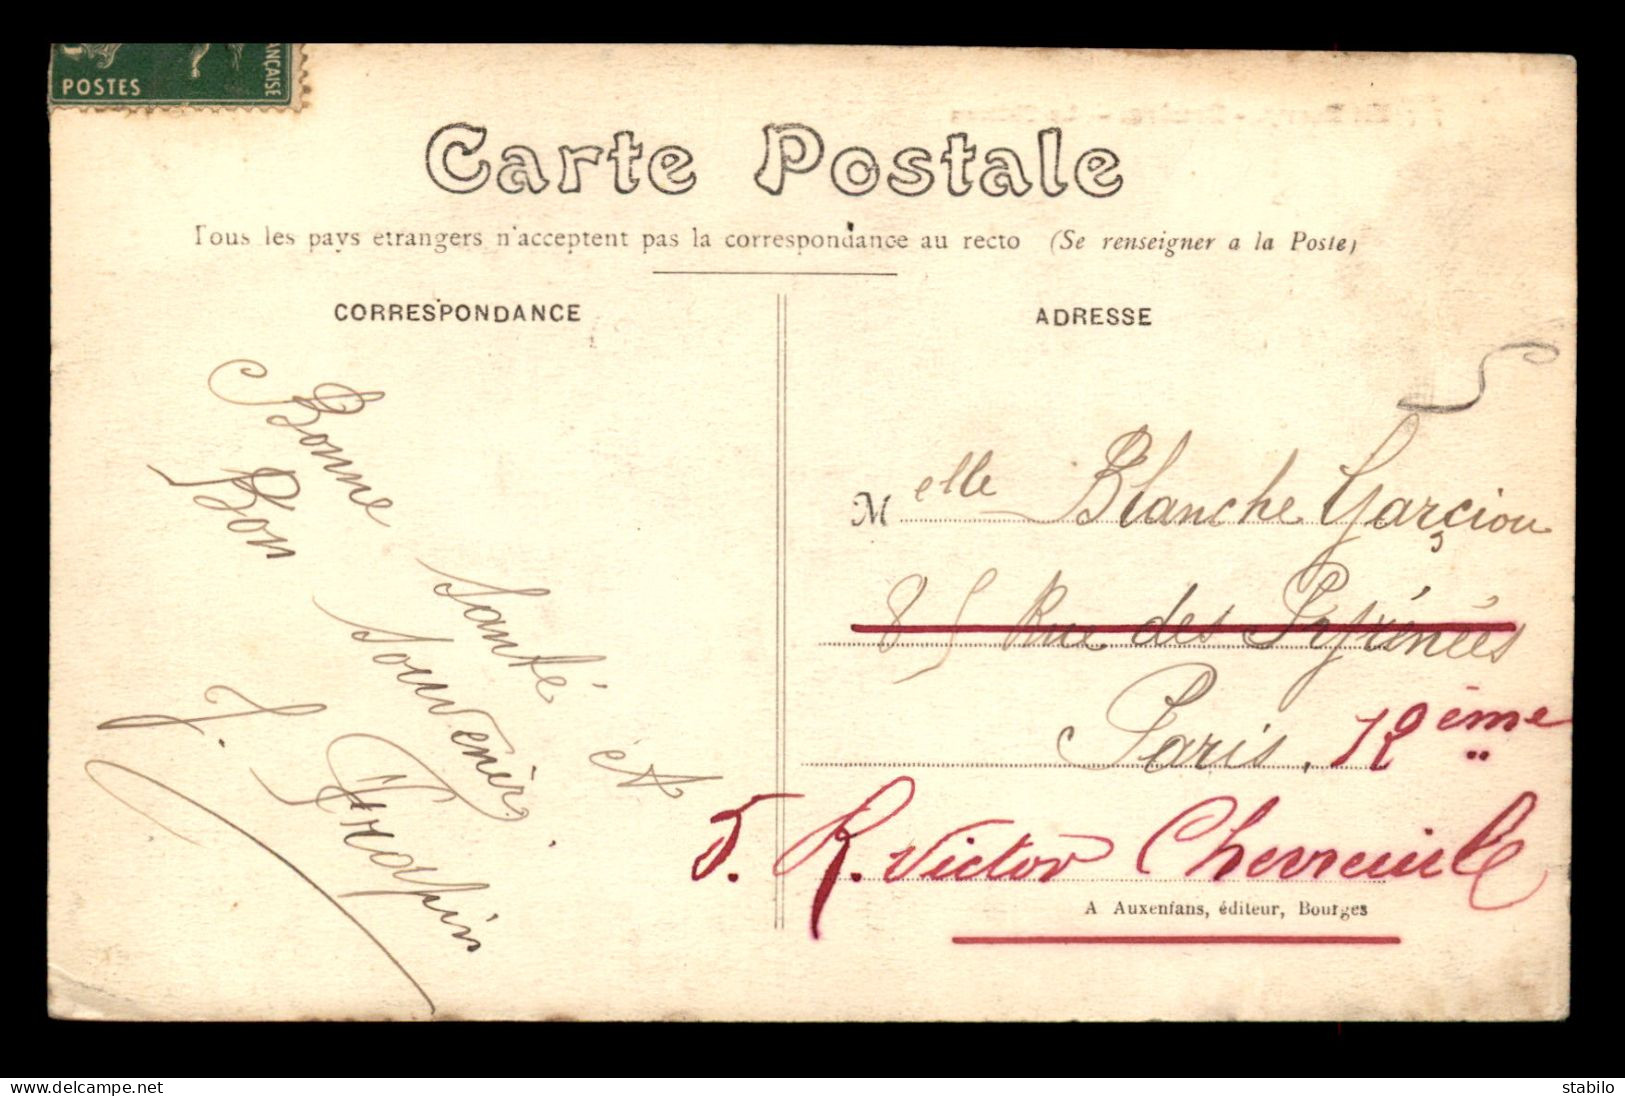 POSTES
ANÇAISE
Carte Postale
Tous les pays etrangers n'acceptent pas la correspondance au recto (Se renseigner a la Poste)
CORRESPONDANCE
Bonne Santé et
Bon Souvenir.
J. Trapin
ADRESSE
Melle Blanche Garçiou
85 Rue des Pyrénées
Paris, 12ème
5. R. Victor Chevreuil
A Auxenfans, éditeur, Bourges
www.delcampe.net
stabilo